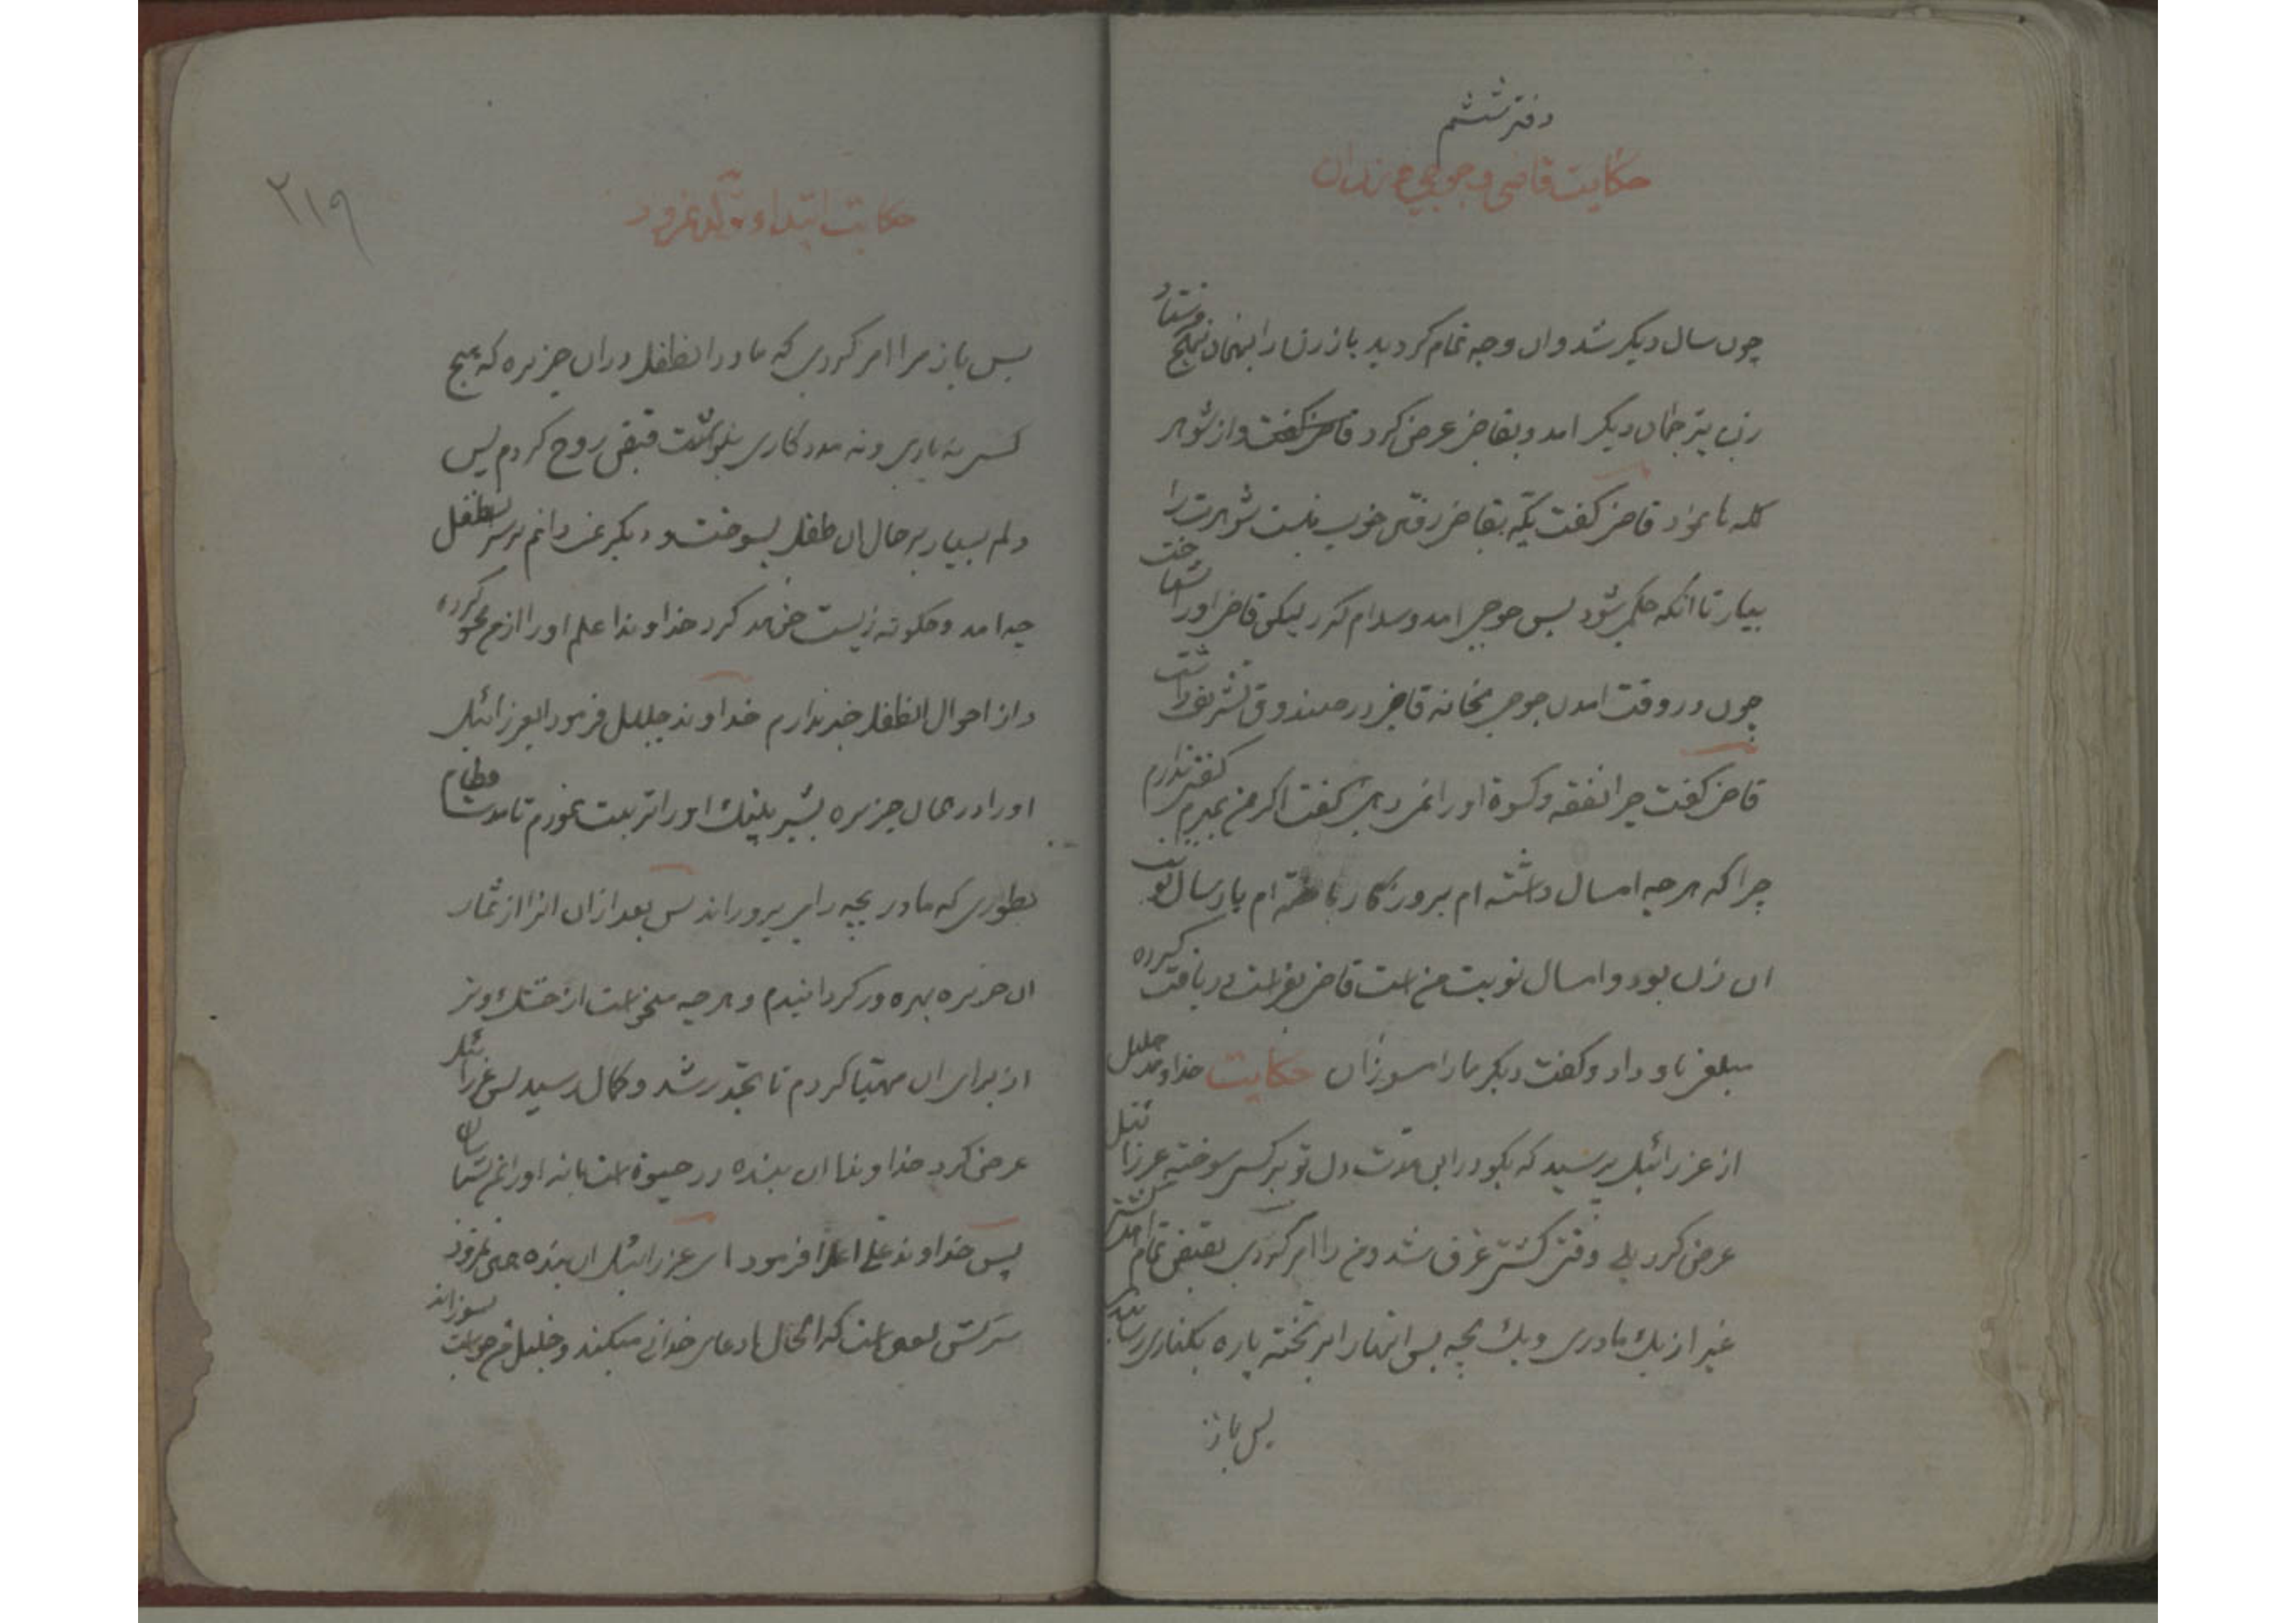 دفتر ششم
حکایت قاضی و جوجی زنان
چون سال دیکر شد و ان وجه تمام کردید باز زن را بنهان فرستاد
زن بترجمان دیکر امد و بقاضی عرض کرد قاضی و از شوهر
کله ها نمود قاضی کفت شوهرت را
بیار تا انکه حکم شود بس جوجی امد و سلام کرد لیکن قاضی اورا شناخت
چون در وقت امدن جوجی بخانه قاضی در صندوق تشریف داشت
قاضی کفت چرا نفقه و کسوة اورا نمی دهی کفت اکر من بمیرم کفن ندارم
چرا که هر چه امسال داشته ام بروزکار باخته ام پارسال نوبت
ان زن بود و امسال نوبت من است قاضی بفراست دریافت کرده
مبلغی باو داد و کفت دیکر مارا مسوزان حکایت خداوند جلیل
از عزرائیل پرسید که بکو در این مدت دل تو بر کسی سوخته عزرائیل
عرض کرد بلی وقتی کشتی غرق شد و من را امر کردی بقبض تمام اهل کشتی
غیر از یك مادری و یك بچه بس انها را بر تخته پاره بکناری رسانیدی
پس باز
۲۱۹
حکایت ابتداء تولد نمرود
بس باز مرا امر کردی که مادر انطفل در ان جزیره که هیج
کسی نه یاری و نه مددکاری بود قبض روح کردم پس
دلم بسیار بر حال ان طفل بسوخت و دیکر نمی دانم بر سر انطفل
چه امد و چکونه زیست خواهد کرد خداوندا علم اورا از من محو کرده
و از احوال انطفل خبر ندارم خداوند جلیل فرمود ایعزرائیل
اورا در همان جزیره بشیر پلنك اورا تربیت نمودم تا مدت فطام
بطوری که مادر بچه را می پروراند بس بعد از ان انرا از ثمار
ان جزیره بهره ور کردانیدم و هر چه میخواست از خشك و تر
از برای ان مهیا کردم تا بحد رشد و کمال رسید بس عزرائیل
عرض کرد خداوندا ان بنده در حیوة است یا نه اورا نمی شناسم
پس خداوند علی اعلا فرمود ای عزرائیل ان بنده همین نمرود
سرکش است که الحال ادعای خدائی میکند و خلیل من خواست بسوزاند